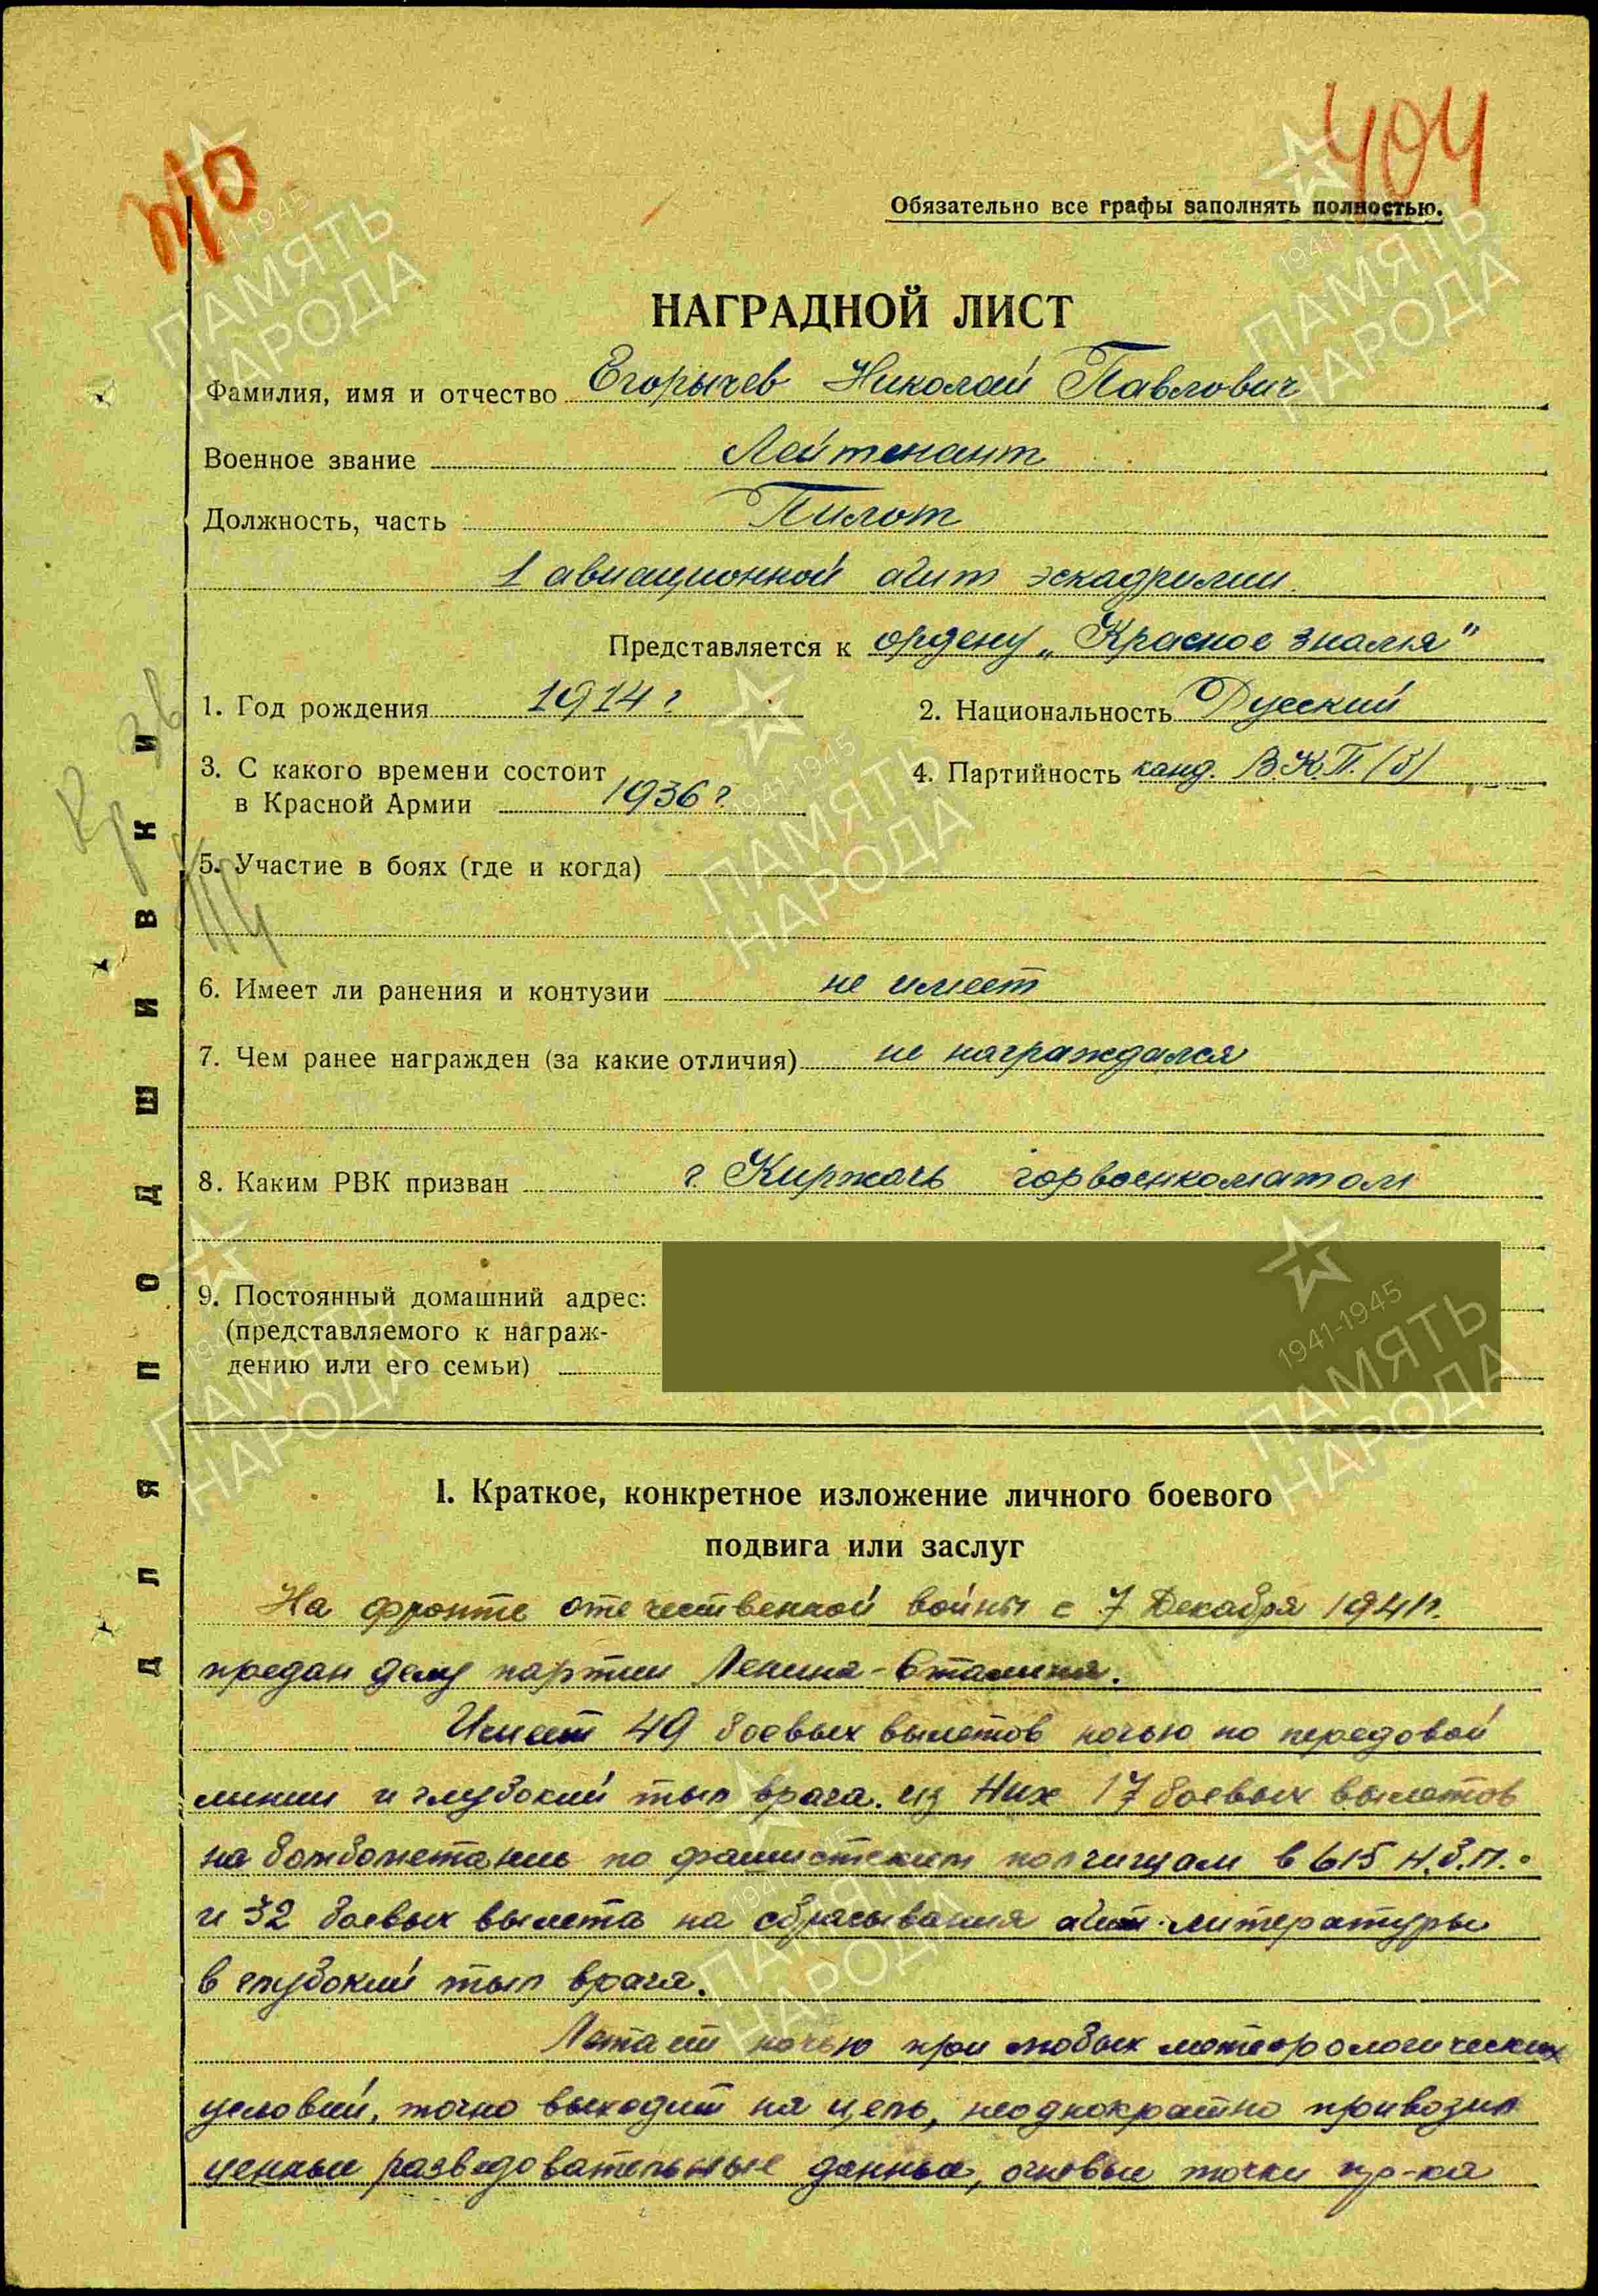 404
Обязательно все графы заполнять полностью.
НАГРАДНОЙ ЛИСТ
Фамилия, имя и отчество Егорычев Николай Павлович
Военное звание Лейтенант
Должность, часть Пилот
1 авиационной агит эскадрилии
Представляется к ордену „Красное знамя"
1. Год рождения 1914 г
2. Национальность Русский
3. С какого времени состоит
в Красной Армии 1936 г.
4. Партийность канд. В.К.П.(б)
5. Участие в боях (где и когда)
6. Имеет ли ранения и контузии не имеет
7. Чем ранее награжден (за какие отличия) не награждался
8. Каким РВК призван г Киржачь горвоенкоматом
9. Постоянный домашний адрес:
(представляемого к награж-
дению или его семьи)
ДЛЯ ПОДШИВКИ
I. Краткое, конкретное изложение личного боевого
подвига или заслуг
На фронте отечественной войны с 7 Декабря 1941г.
предан делу партии Ленина-Сталина.
Имеет 49 боевых вылетов ночью по передовой
линии и глубокий тыл врага. из них 17 боевых вылетов
на бомбометание по фашистским полчищам в 615 Н.Б.П.
и 32 боевых вылета на сбрасывания агит-литературы
в глубокий тыл врага.
Летает ночью при любых метеорологических
условий, точно выходит на цель, неоднократно привозил
ценные разведовательные данные, огневые точки пр-ка
1941-1945
ПАМЯТЬ
НАРОДА
1941-1945
ПАМЯТЬ
НАРОДА
1941-1945
ПАМЯТЬ
НАРОДА
1941-1945
ПАМЯТЬ
НАРОДА
1941-1945
ПАМЯТЬ
НАРОДА
1941-1945
ПАМЯТЬ
НАРОДА